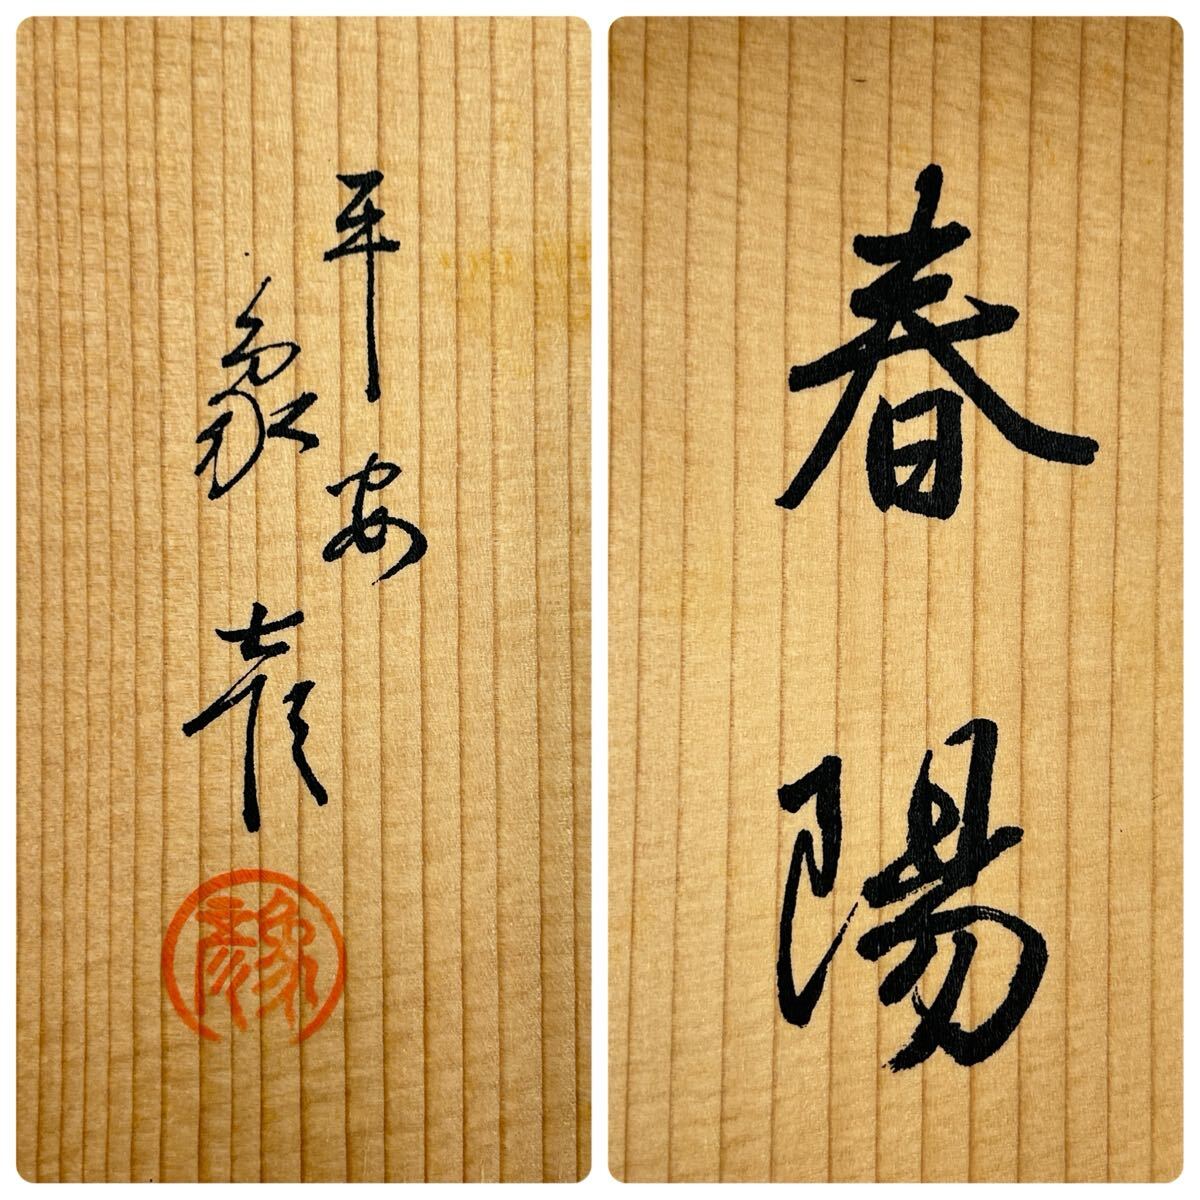 春陽
平安
象彦
象彦